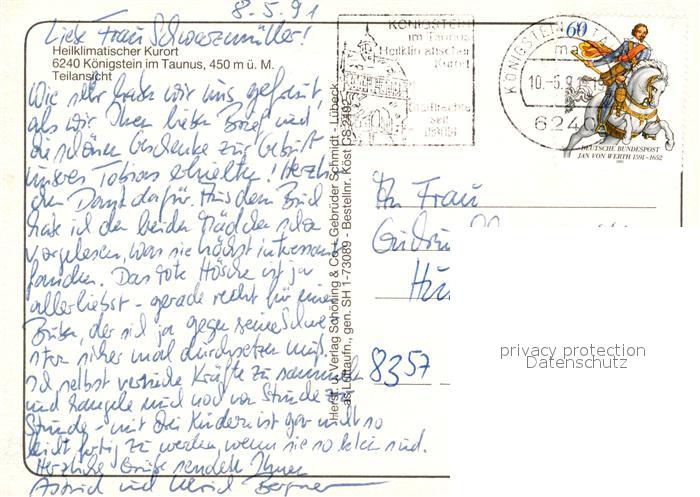 8.5.91
Liebe Frau Schwarzmüller!
Heilklimatischer Kurort
6240 Königstein im Taunus, 450 m ü. M.
Teilansicht
Wie sehr haben wir uns gefreut,
als wir Ihren lieben Brief und
die schönen Geschenke zur Geburt
unseres Tobias erhielten! Herzli-
chen Dank dafür. Aus dem Buch
habe ich den beiden Mädchen schon
vorgelesen, was sie höchst interessant
fanden. Das rote Höschen ist ja
allerliebst - gerade recht für einen
Buben, der sich ja gegen seine Schwe
stern sicher mal durchsetzen muß.
Ich selbst versuche Kräfte zu sammeln
und hangele mich noch von Stunde zu
Stunde - mit drei Kindern ist gar nicht so
leicht fertig zu werden, wenn sie so klein sind.
Herzliche Grüße senden Ihnen
Astrid und Ulrich Bergner
Herst. u. Verlag Schöning & Co + Gebrüder Schmidt - Lübeck
as Luftaufn., gen. SH 1-73089 - Bestellnr. Köst CS 2402
KÖNIGSTEIN
im Taunus
Heilklimatischer
Kurort
Stadtrechte
seit
KÖNIGSTEIN, TA
10.-5.9
6240
60
DEUTSCHE BUNDESPOST
JAN VON WERTH 1591-1652
An Frau
8357
privacy protection
Datenschutz